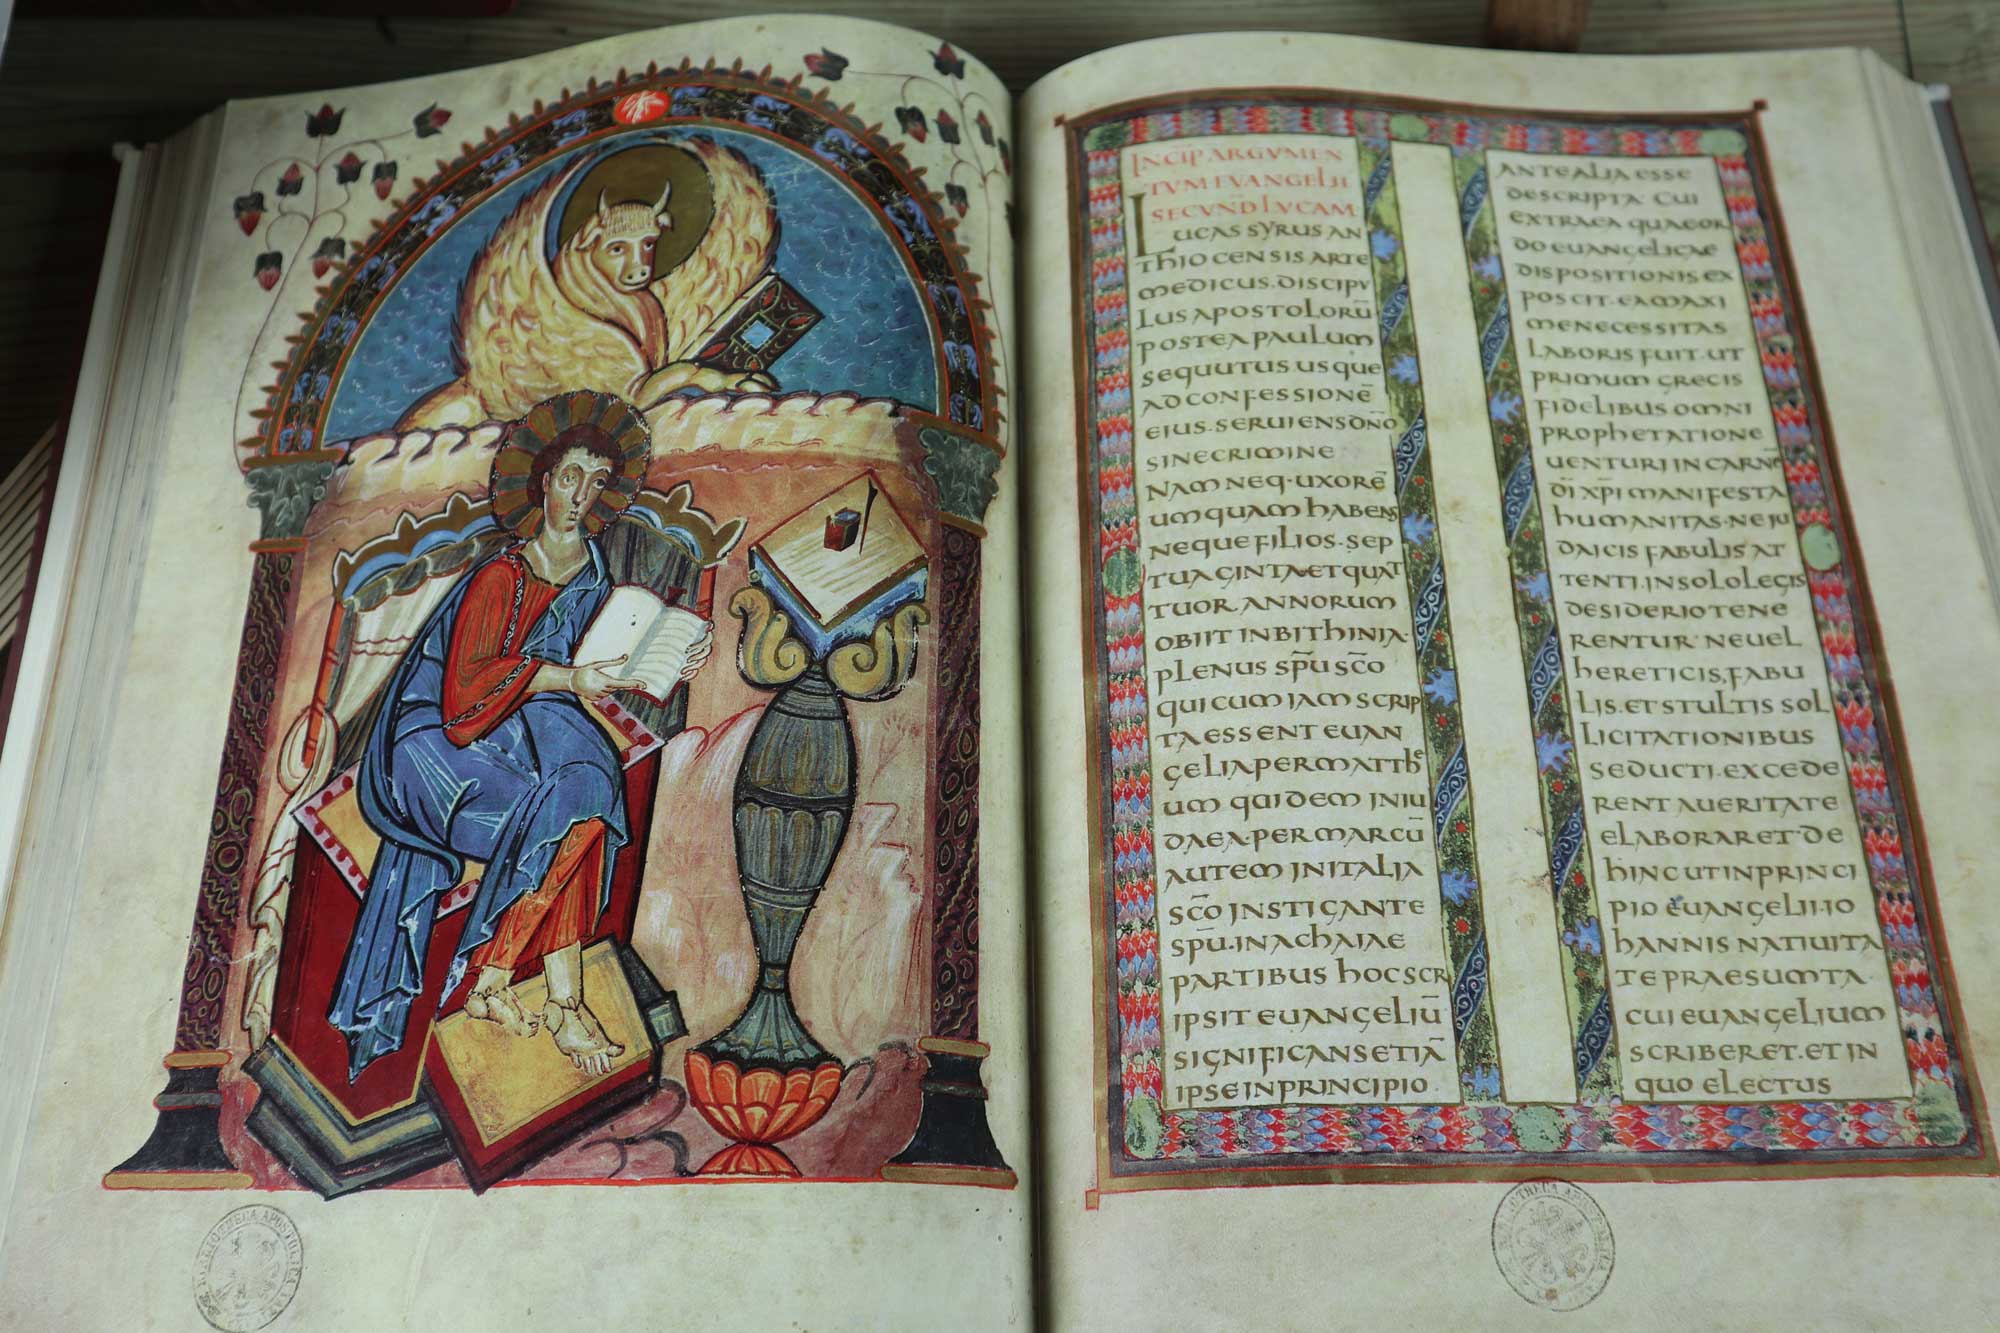 INCIP̄ ARGVMEN
TVM EVANGELII
SECVND̄ LVCAM
LUCAS SYRUS AN
THIOCENSIS ARTE
MEDICUS. DISCIPU
LUS APOSTOLORŪ.
POSTEA PAULUM
SEQUUTUS USQUE
AD CONFESSIONĒ
EIUS. SERUIENS DN̄O
SINE CRIMINE
NAM NEQ. UXORĒ
UMQUAM HABENS
NEQUE FILIOS. SEP
TUAGINTA ET QUAT
TUOR. ANNORUM
OBIIT IN BITHINIA.
PLENUS SP̄U SC̄O
QUI CUM IAM SCRIP
TA ESSENT EUAN
GELIA PER MATTHE
UM QUIDEM IN IU
DAEA. PER MARCŪ
AUTEM IN ITALIA
SC̄O INSTIGANTE
SP̄U. IN ACHAIAE
PARTIBUS HOC SCR
IPSIT EUANGELIŪ
SIGNIFICANS ETIĀ
IPSE IN PRINCIPIO.
ANTE ALIA ESSE
DESCRIPTA. CUI
EXTRA EA QUAE OR
DO EUANGELICAE
DISPOSITIONIS EX
POSCIT. EA MAXI
ME NECESSITAS
LABORIS FUIT. UT
PRIMUM GRECIS
FIDELIBUS OMNI
PROPHETATIONE
UENTURI IN CARNĒ
DĪ XP̄I MANIFESTA
HUMANITAS. NE IU
DAICIS FABULIS AT
TENTI. IN SOLO LEGIS
DESIDERIO TENE
RENTUR. NE UEL
HERETICIS, FABU
LIS. ET STULTIS SOL
LICITATIONIBUS
SEDUCTI. EXCEDE
RENT A UERITATE
ELABORARET. DE
HINC UT IN PRINCI
PIO EUANGELII. IO
HANNIS NATIUITA
TE PRAESUMTA.
CUI EUANGELIUM
SCRIBERET. ET IN
QUO ELECTUS
BIBLIOTHECA APOSTOLICA VAT.